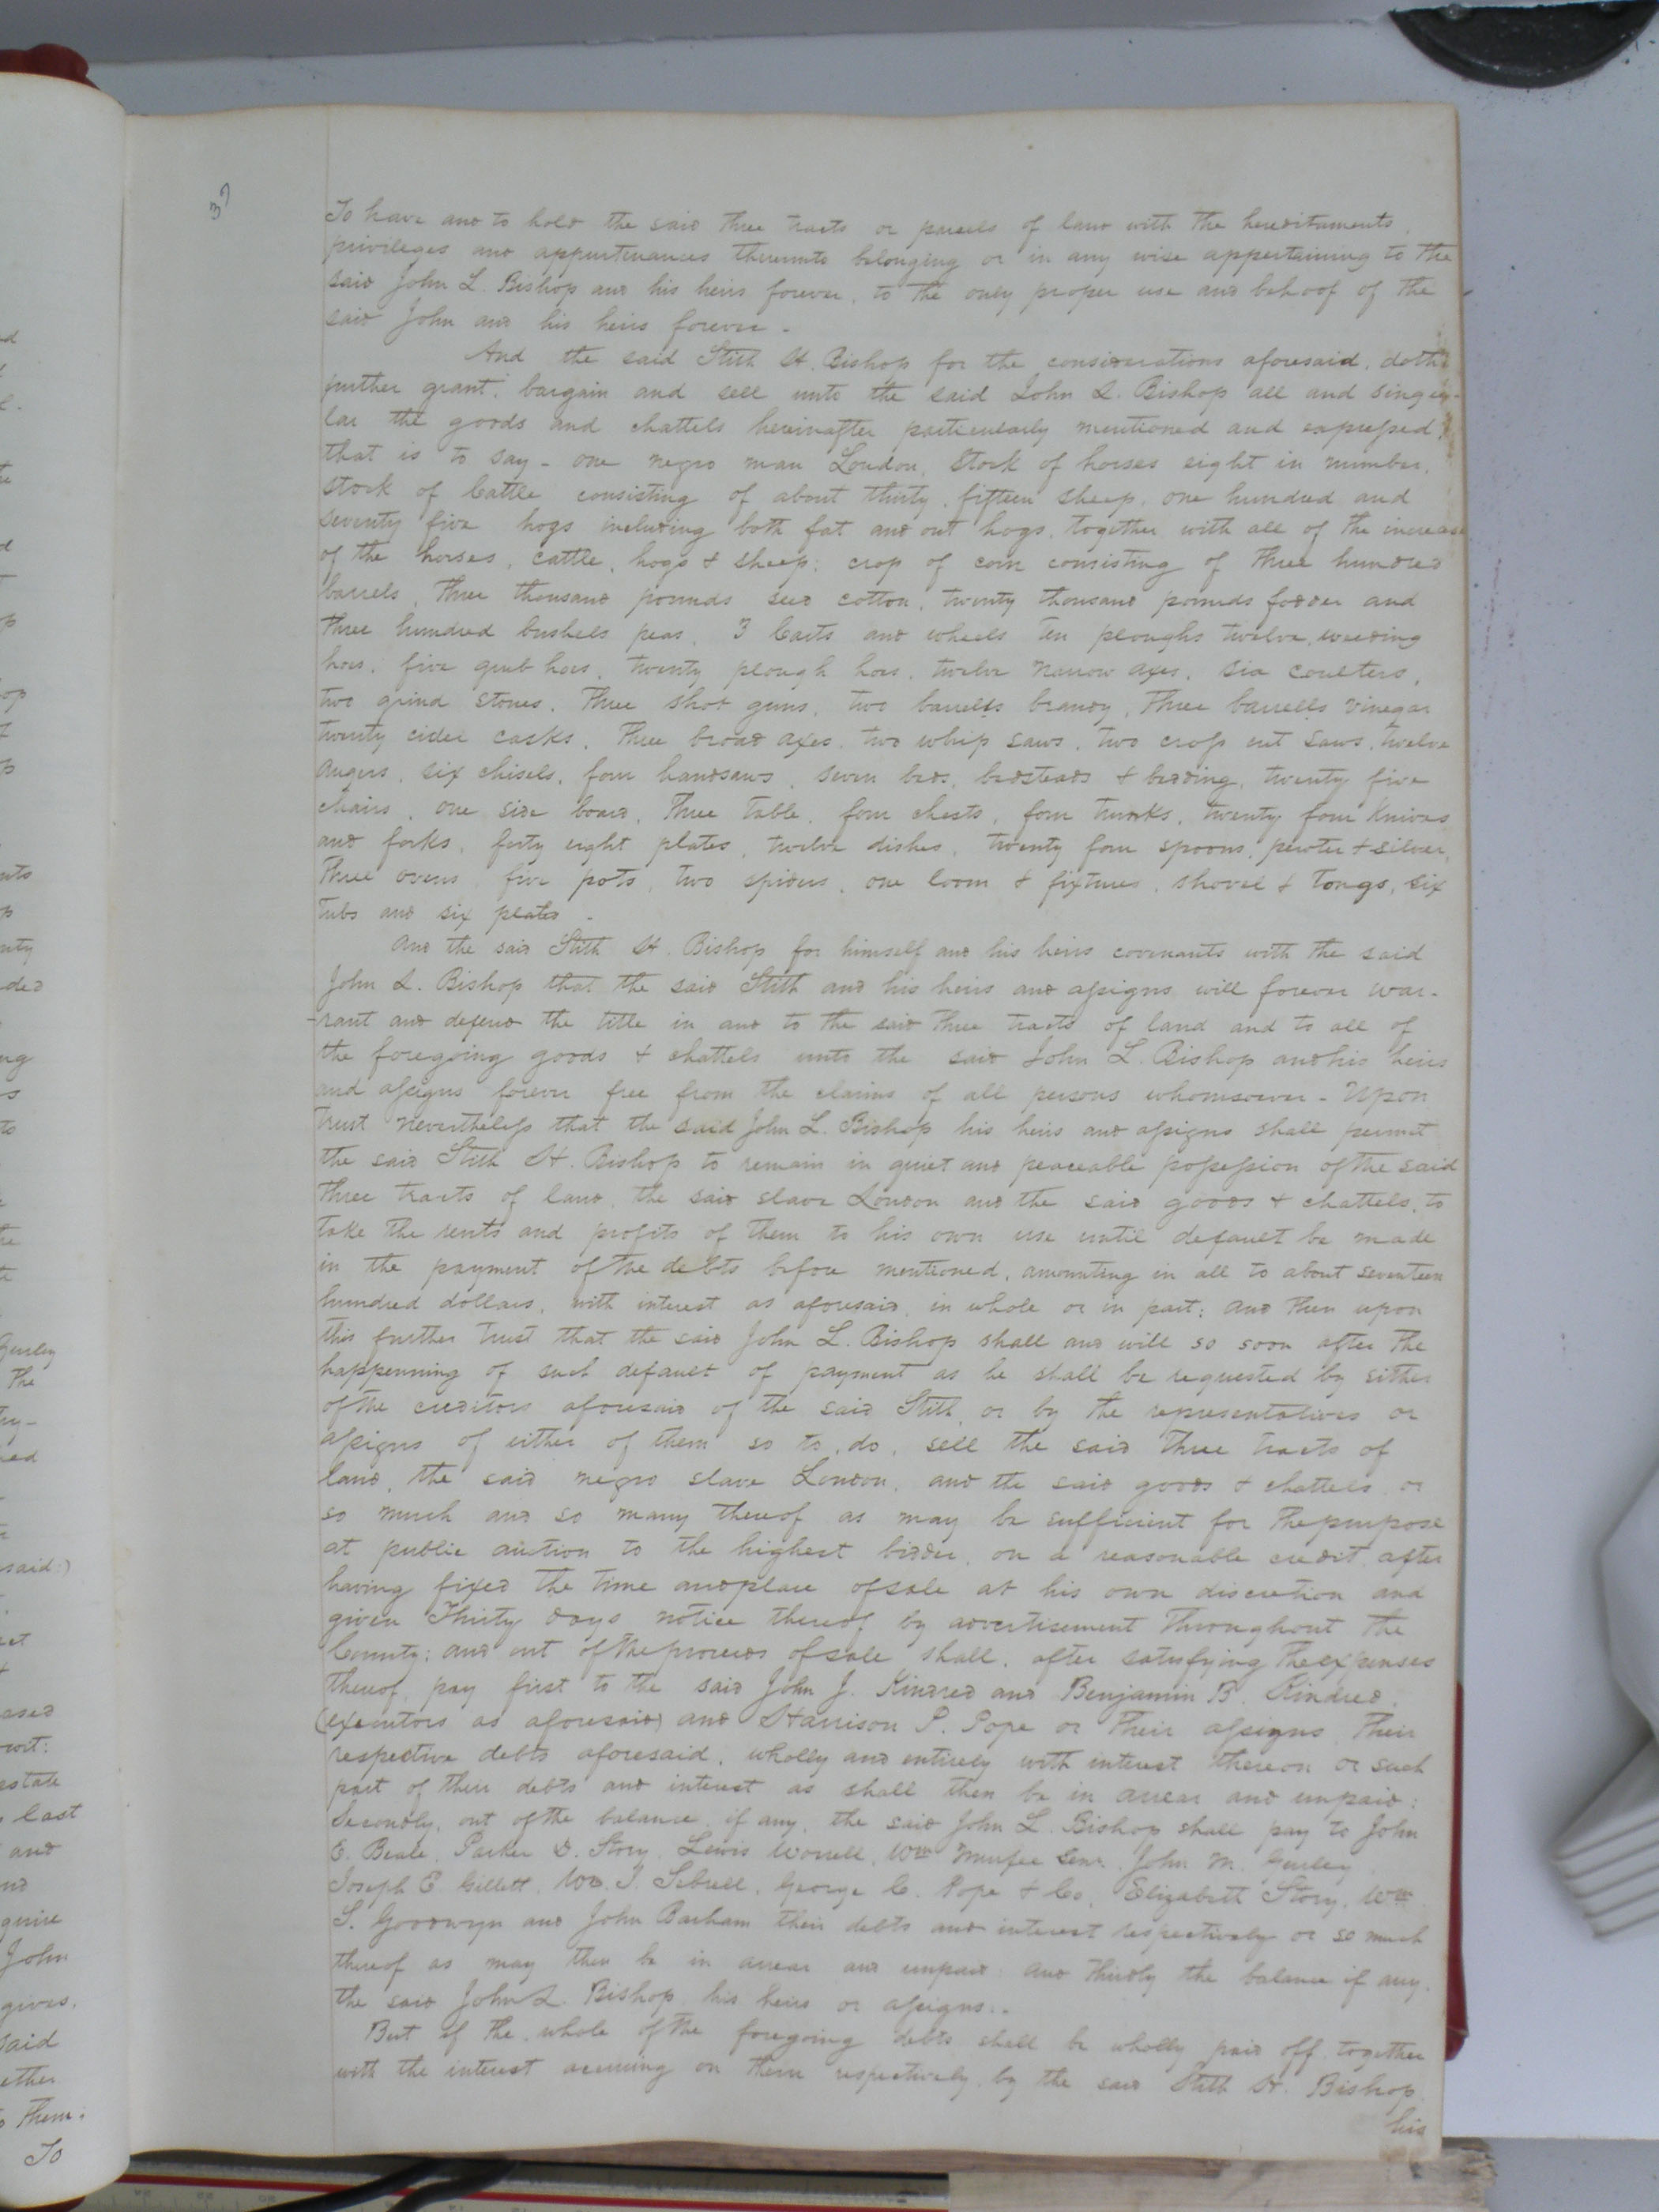 37
To have and to hold the said three tracts or parcels of land with the hereditaments,
privileges and appurtenances thereunto belonging or in any wise appertaining to the
said John L. Bishop and his heirs forever, to the only proper use and behoof of the
said John and his heirs forever.
And the said Stith H. Bishop for the considerations aforesaid, doth
further grant, bargain and sell unto the said John L. Bishop all and singu-
lar the goods and chattels hereinafter particularly mentioned and expressed,
that is to say - one negro man London, Stock of horses eight in number,
stock of Cattle consisting of about thirty, fifteen sheep, one hundred and
seventy five hogs including both fat and out hogs, together with all of the increase
of the horses, cattle, hogs & sheep; crop of corn consisting of three hundred
barrels, three thousand pounds seed cotton, twenty thousand pounds fodder and
three hundred bushels peas, 3 Carts and wheels ten ploughs twelve weeding
hoes, five grub hoes, twenty plough hoes, twelve narrow axes, six coulters,
two grind stones, three shot guns, two barrells brandy, three barrells vinegar
twenty cider casks, three broad axes, two whip saws, two cross cut saws, twelve
augers, six chisels, four handsaws, seven beds, bedsteads & bedding, twenty five
chairs, one side board, three table, four chests, four trunks, twenty four knives
and forks, forty eight plates, twelve dishes, twenty four spoons, pewter & silver,
three ovens, five pots, two spiders, one loom & fixtures, shovel & tongs, six
tubs and six plates.
And the said Stith H. Bishop for himself and his heirs covenants with the said
John L. Bishop that the said Stith and his heirs and assigns will forever war-
-rant and defend the title in and to the said three tracts of land and to all of
the foregoing goods & chattels unto the said John L. Bishop and his heirs
and assigns forever free from the claims of all persons whomsoever - Upon
trust nevertheless that the said John L. Bishop his heirs and assigns shall permit
the said Stith H. Bishop to remain in quiet and peaceable possession of the said
three tracts of land, the said slave London and the said goods & chattels, to
take the rents and profits of them to his own use until default be made
in the payment of the debts before mentioned, amounting in all to about seventeen
hundred dollars, with interest as aforesaid, in whole or in part; and then upon
this further trust that the said John L. Bishop shall and will so soon after the
happenning of such default of payment as he shall be requested by either
of the creditors aforesaid of the said Stith, or by the representatives or
assigns of either of them so to do, sell the said three tracts of
land, the said negro slave London, and the said goods & chattels or
so much and so many thereof as may be sufficient for the purpose
at public auction to the highest bidder, on a reasonable credit, after
having fixed the time and place of sale at his own discretion and
given Thirty days notice thereof by advertisement throughout the
County; and out of the proceeds of sale shall, after satisfying the expenses
thereof, pay first to the said John J. Kindred and Benjamin B. Kindred
(executors as aforesaid) and Harrison P. Pope or their assigns their
respective debts aforesaid, wholly and entirely with interest thereon or such
part of their debts and interest as shall then be in arrear and unpaid;
Secondly, out of the balance, if any, the said John L. Bishop shall pay to John
E. Beale, Parker D. Story, Lewis Worrell, Wm Murfee Senr, John M. Gurley
Joseph E. Gillett, Wm. J. Sebrell, George C. Pope & Co, Elizabeth Story, Wm
S. Goodwyn and John Barham their debts and interest respectively or so much
thereof as may then be in arrear and unpaid; and thirdly the balance if any,
the said John L. Bishop his heirs or assigns.
But if the whole of the foregoing debts shall be wholly paid off together
with the interest accruing on them respectively by the said Stith H. Bishop
his